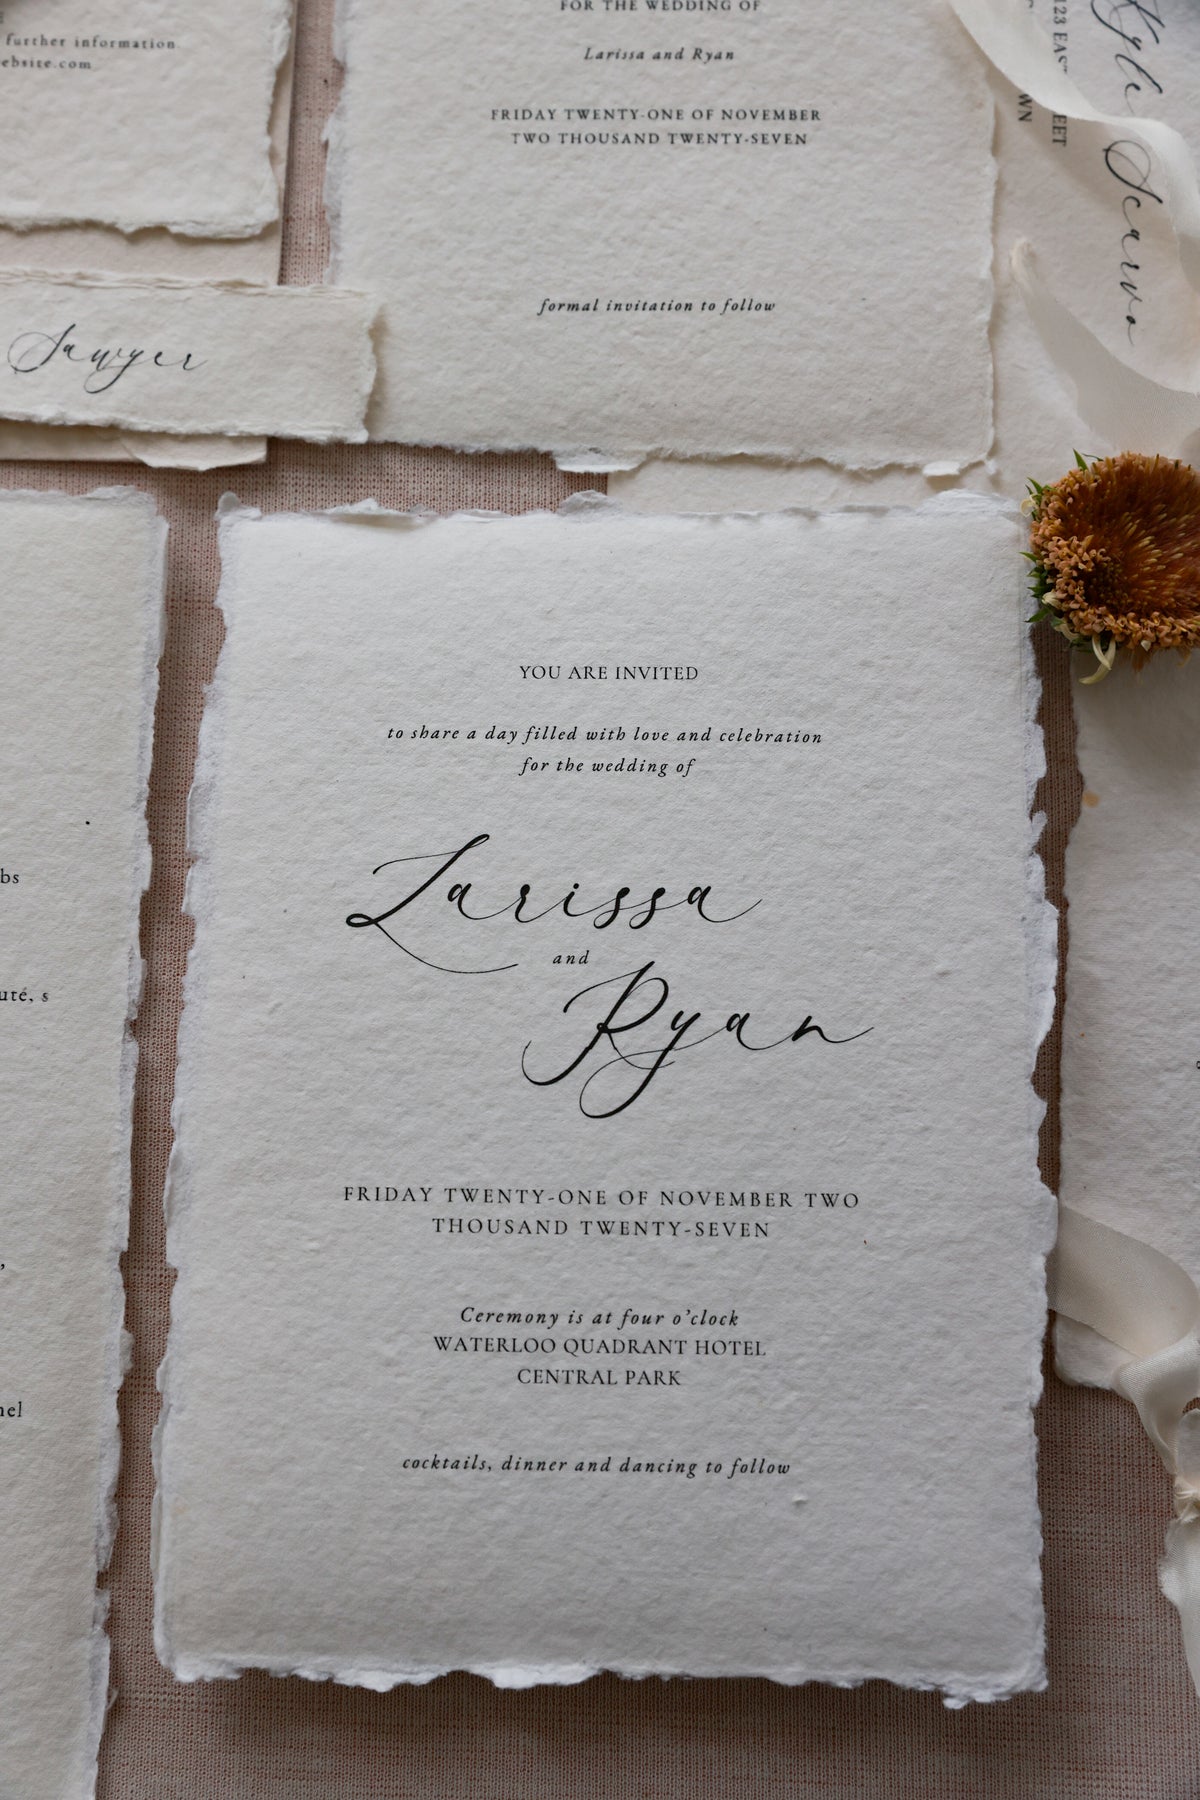 further information.
ebsite.com
FOR THE WEDDING OF
Larissa and Ryan
FRIDAY TWENTY-ONE OF NOVEMBER
TWO THOUSAND TWENTY-SEVEN
formal invitation to follow
Kyle Scarvo
123 EAS
EET
WN
Sawyer
YOU ARE INVITED
to share a day filled with love and celebration
for the wedding of
Larissa
and
Ryan
FRIDAY TWENTY-ONE OF NOVEMBER TWO
THOUSAND TWENTY-SEVEN
Ceremony is at four o'clock
WATERLOO QUADRANT HOTEL
CENTRAL PARK
cocktails, dinner and dancing to follow
bs
uté, s
nel